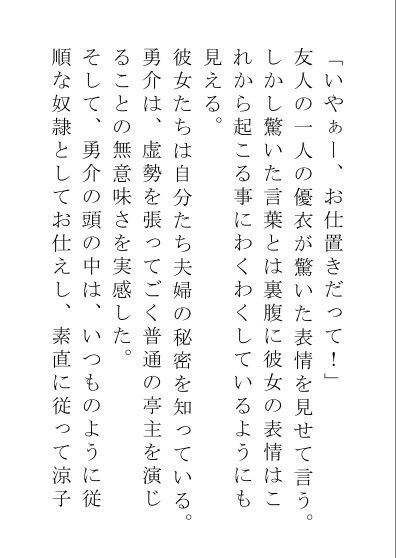 「いやぁー、お仕置きだって！」
友人の一人の優衣が驚いた表情を見せて言う。
しかし驚いた言葉とは裏腹に彼女の表情はこ
れから起こる事にわくわくしているようにも
見える。
彼女たちは自分たち夫婦の秘密を知っている。
勇介は、虚勢を張ってごく普通の亭主を演じ
ることの無意味さを実感した。
そして、勇介の頭の中は、いつものように従
順な奴隷としてお仕えし、素直に従って涼子